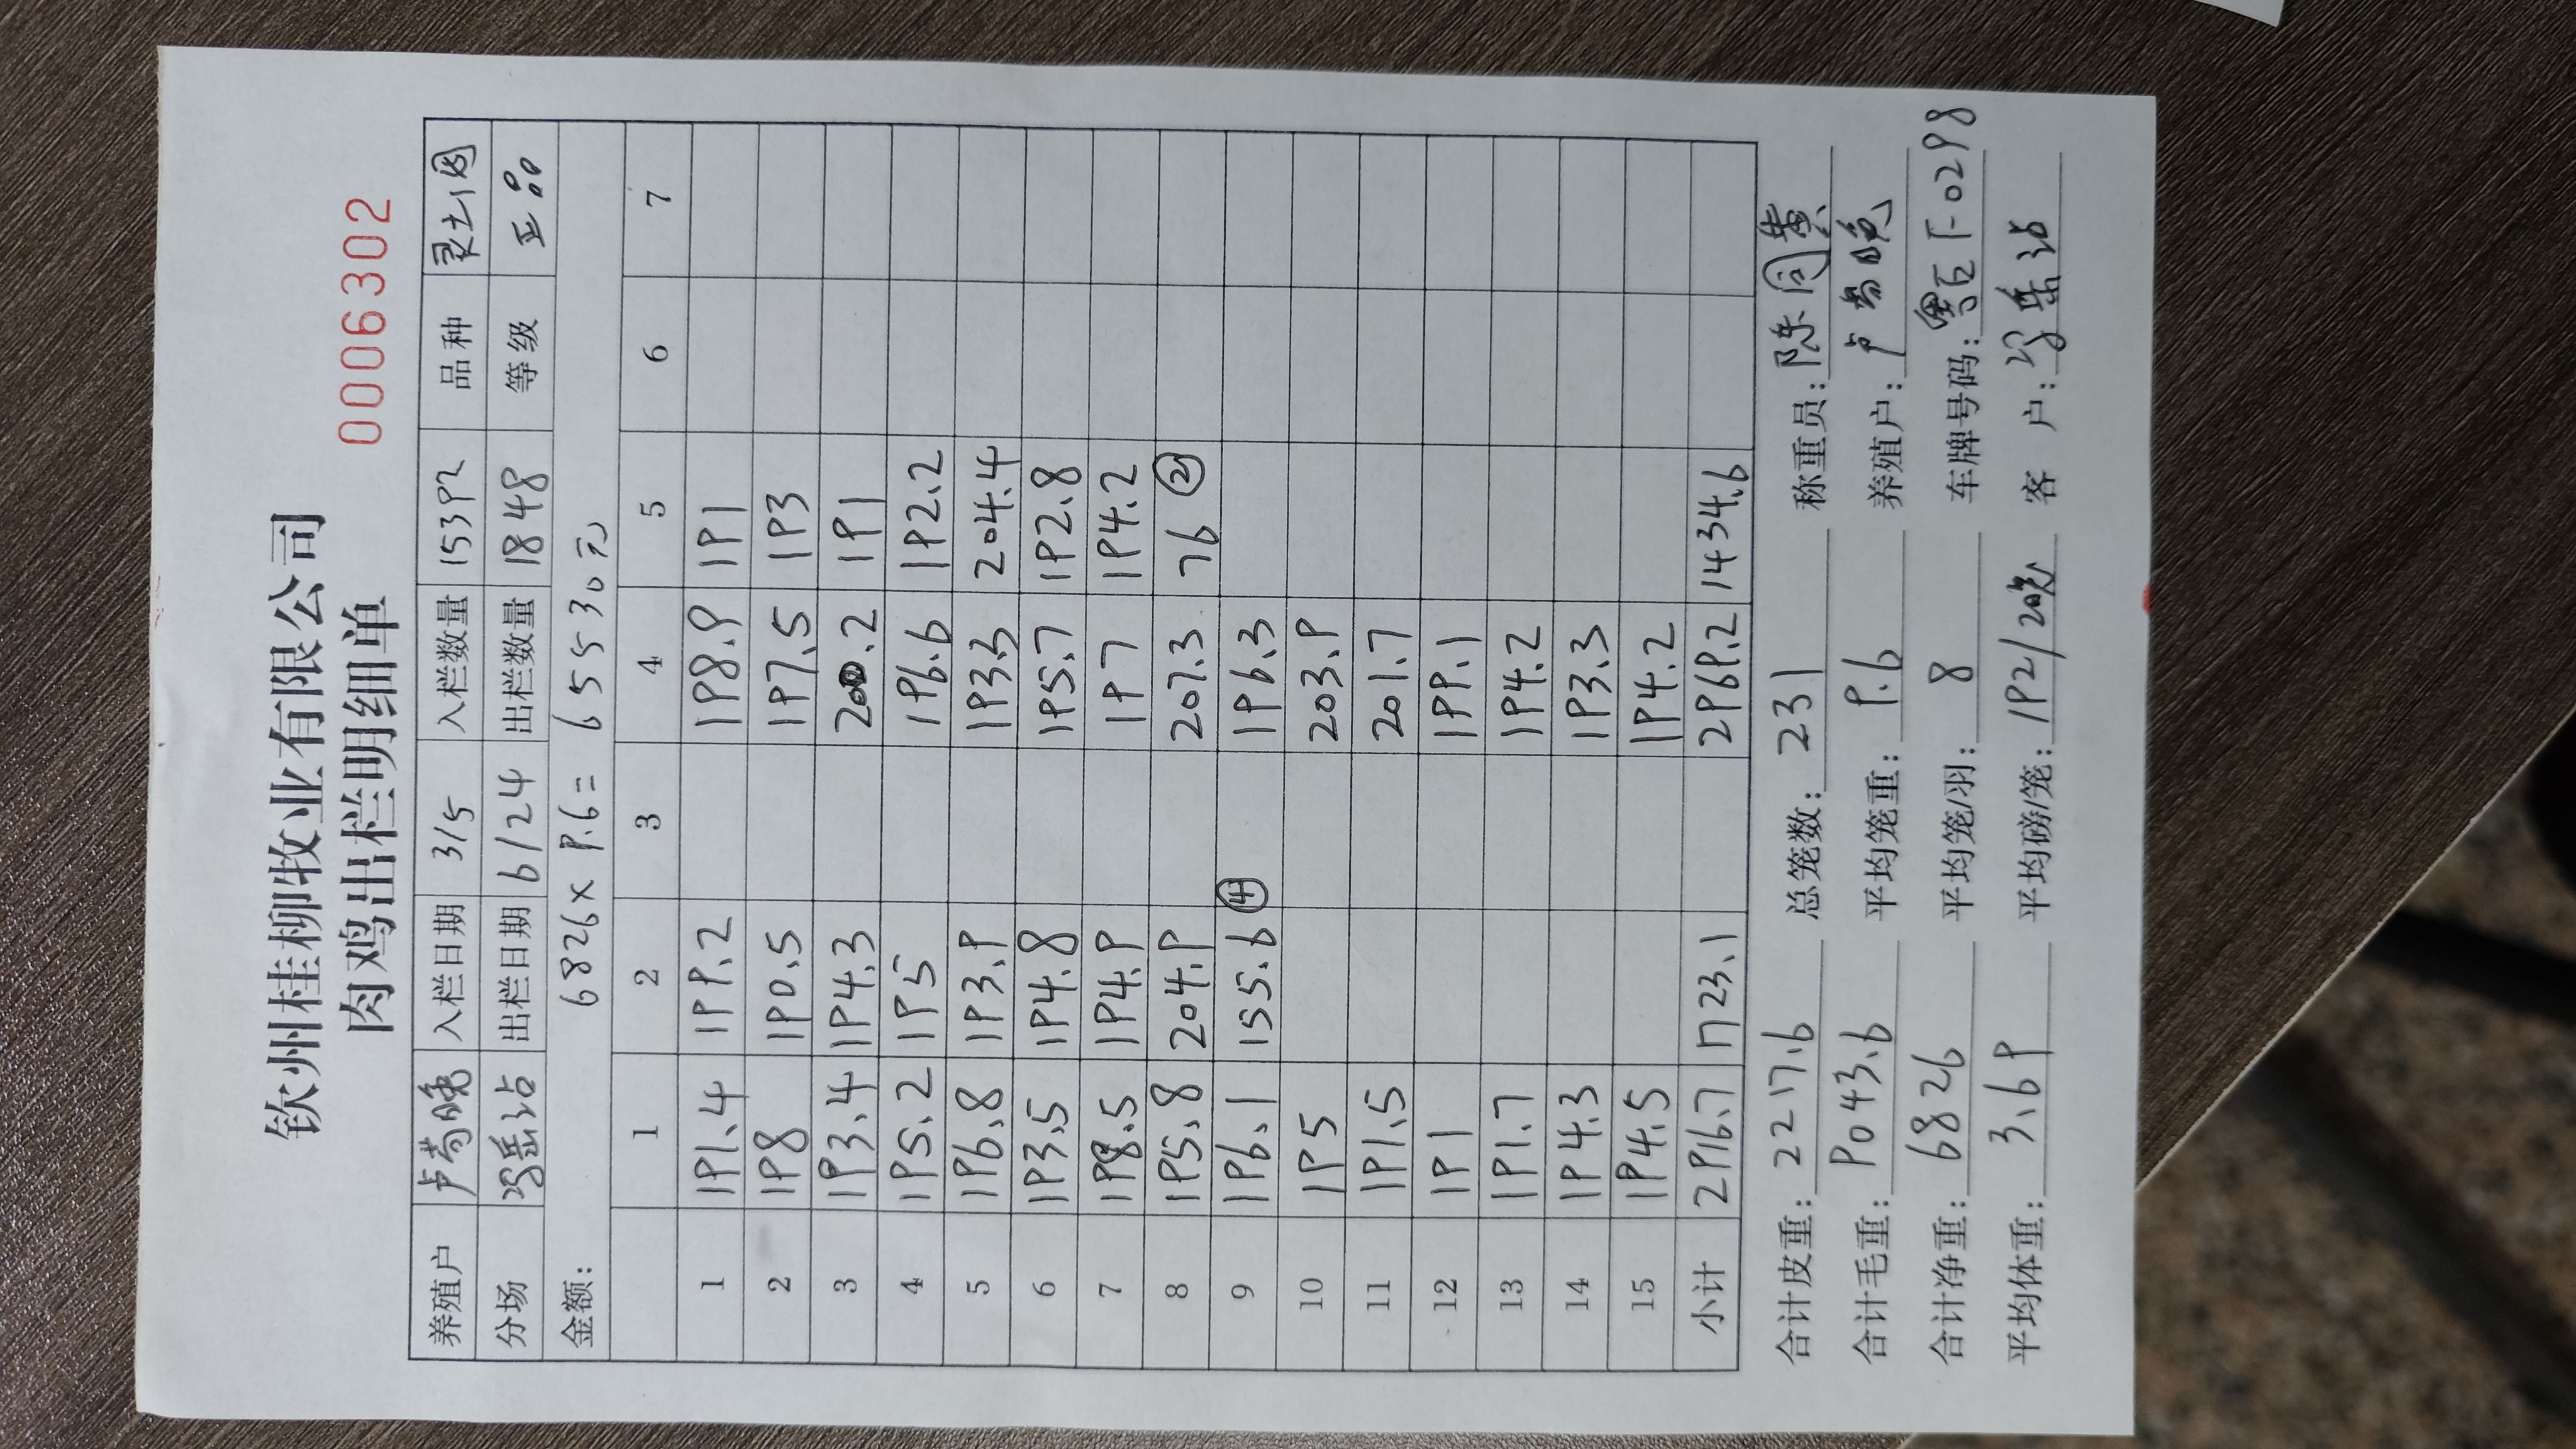 钦州桂柳牧业有限公司
肉鸡出栏明细单
0006302
养殖户 卢 晚 入栏日期 3/5 入栏数量 15392 品种
分场 出栏日期 6/24 出栏数量 1848 等级 正品
金额: 6826×9.6=65530元
1 2 3 4 5 6 7
1 191.4 199.2 198.9 191
2 198 190.5 197.5 193
3 193.4 194.3 200.2 191
4 195.2 195 196.6 192.2
5 196.8 193.9 193.3 204.4
6 193.5 194.8 195.7 192.8
7 198.5 194.9 197 194.2
8 195.8 204.9 207.3 76 ②
9 196.1 155.6 ④ 196.3
10 195 203.9
11 191.5 201.7
12 191 199.1
13 191.7 194.2
14 194.3 193.3
15 194.5 194.2
小计 2916.7 1723.1 2969.2 1434.6
合计皮重: 2217.6 总笼数: 231 称重员: 陈
合计毛重: 9043.6 平均笼重: 9.6 养殖户: 卢 晚
合计净重: 6826 平均笼/羽: 8 车牌号码: 0298
平均体重: 3.69 平均磅/笼: 192/20 客户: